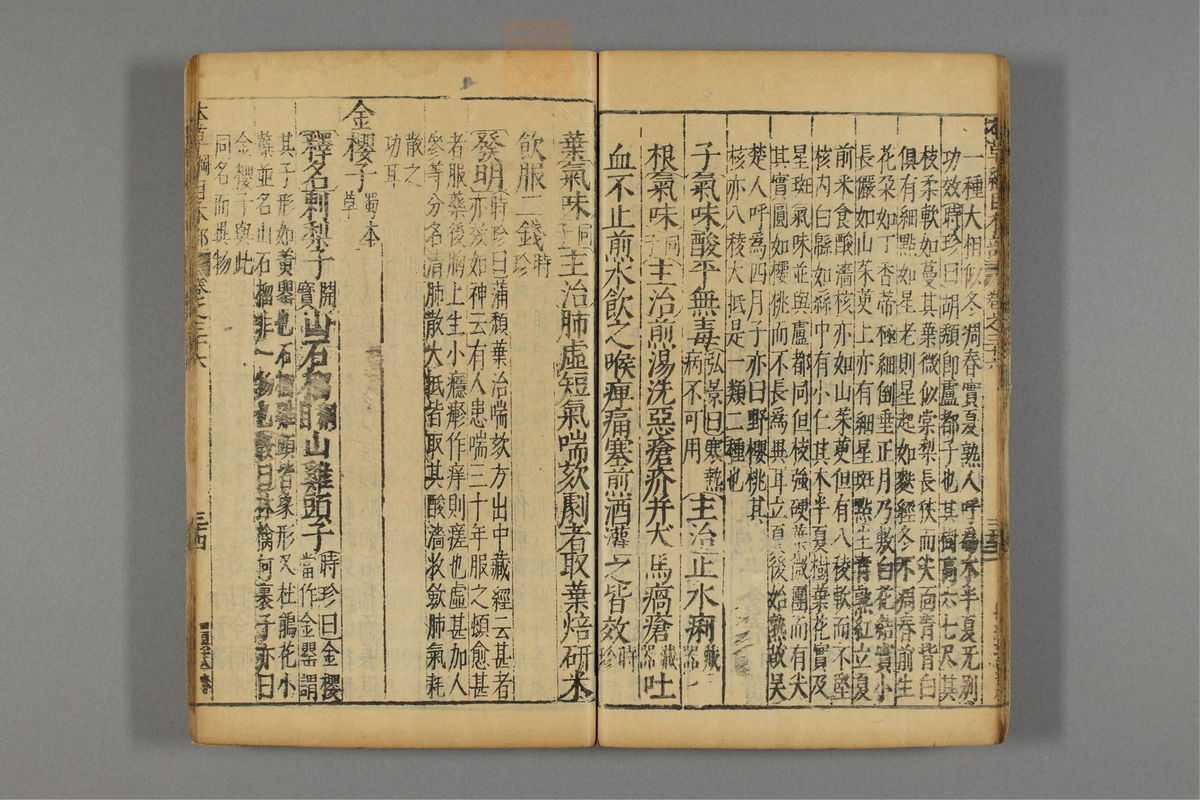 一種大相似冬凋春實夏熟人呼爲木半夏无別
功效時珍曰胡頹卽盧都子也其樹高六七尺其
枝柔軟如蔓其葉微似棠梨長狹而尖面靑背白
俱有細點如星老則星起如麩經冬不凋春前生
花朶如丁香蒂極細倒垂正月乃敷白花結實小
長儼如山茱萸上亦有細星斑點生靑熟紅立夏
前采食酸濇核亦如山茱萸但有八稜軟而不堅
核內白緜如絲中有小仁其木半夏樹葉花實及
星斑氣味並與盧都同但枝強硬葉微團而有尖
其實圓如櫻桃而不長爲異耳立夏後始熟故吳
楚人呼爲四月子亦曰野櫻桃其
核亦八稜大抵是一類二種也
子氣味酸平無毒弘景曰寒熱病不可用主治止水痢藏器
根氣味同子主治煎湯洗惡瘡疥幷犬馬瘑瘡藏器吐
血不止煎水飲之喉痺痛塞煎酒灌之皆效時珍
葉氣味同子主治肺虛短氣喘欬劇者取葉焙研米
飲服二錢時珍
發明時珍曰蒲頹葉治喘欬方出中藏經云甚者
亦效如神云有人患喘三十年服之頓愈甚
者服藥後胸上生小癮疹作痒則瘥也虛甚加人
參等分名淸肺散大抵皆取其酸濇收斂肺氣耗
散之
功耳
金櫻子蜀本草
釋名刺梨子開寶山石榴山雞頭子時珍曰金櫻
當作金罌謂
其子形如黃罌也石榴雞頭皆象形又杜鵑花小
蘗並名山石榴非一物也
金櫻子與此
同名而異物
本草綱目木部 卷之三十六 三四